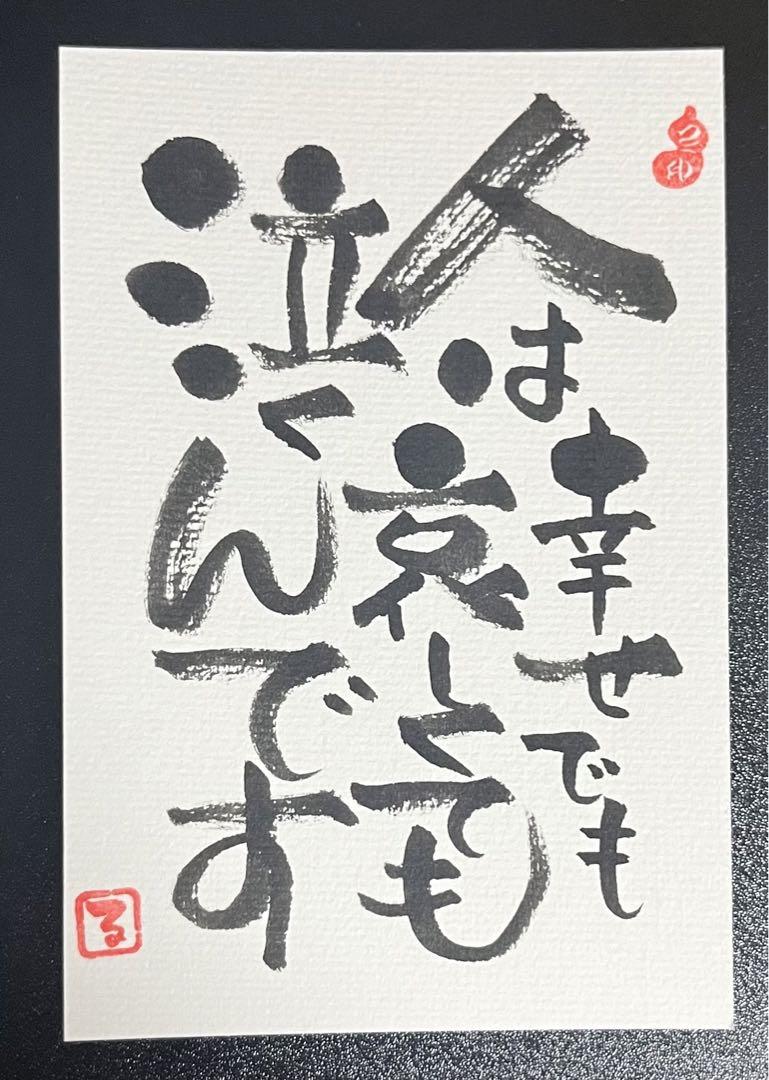 人は幸せでも
哀しくても
泣くんです
る